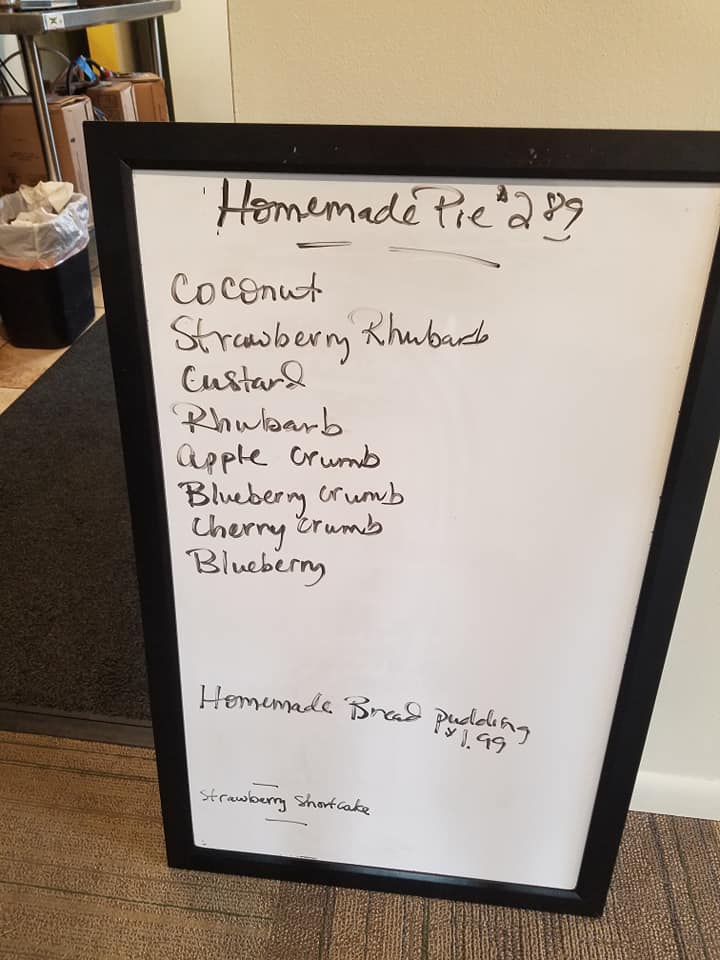 Homemade Pie $2 89
Coconut
Strawberry Rhubarb
Custard
Rhubarb
apple crumb
Blueberry crumb
Cherry crumb
Blueberry
Homemade Bread pudding
$1.99
Strawberry Shortcake